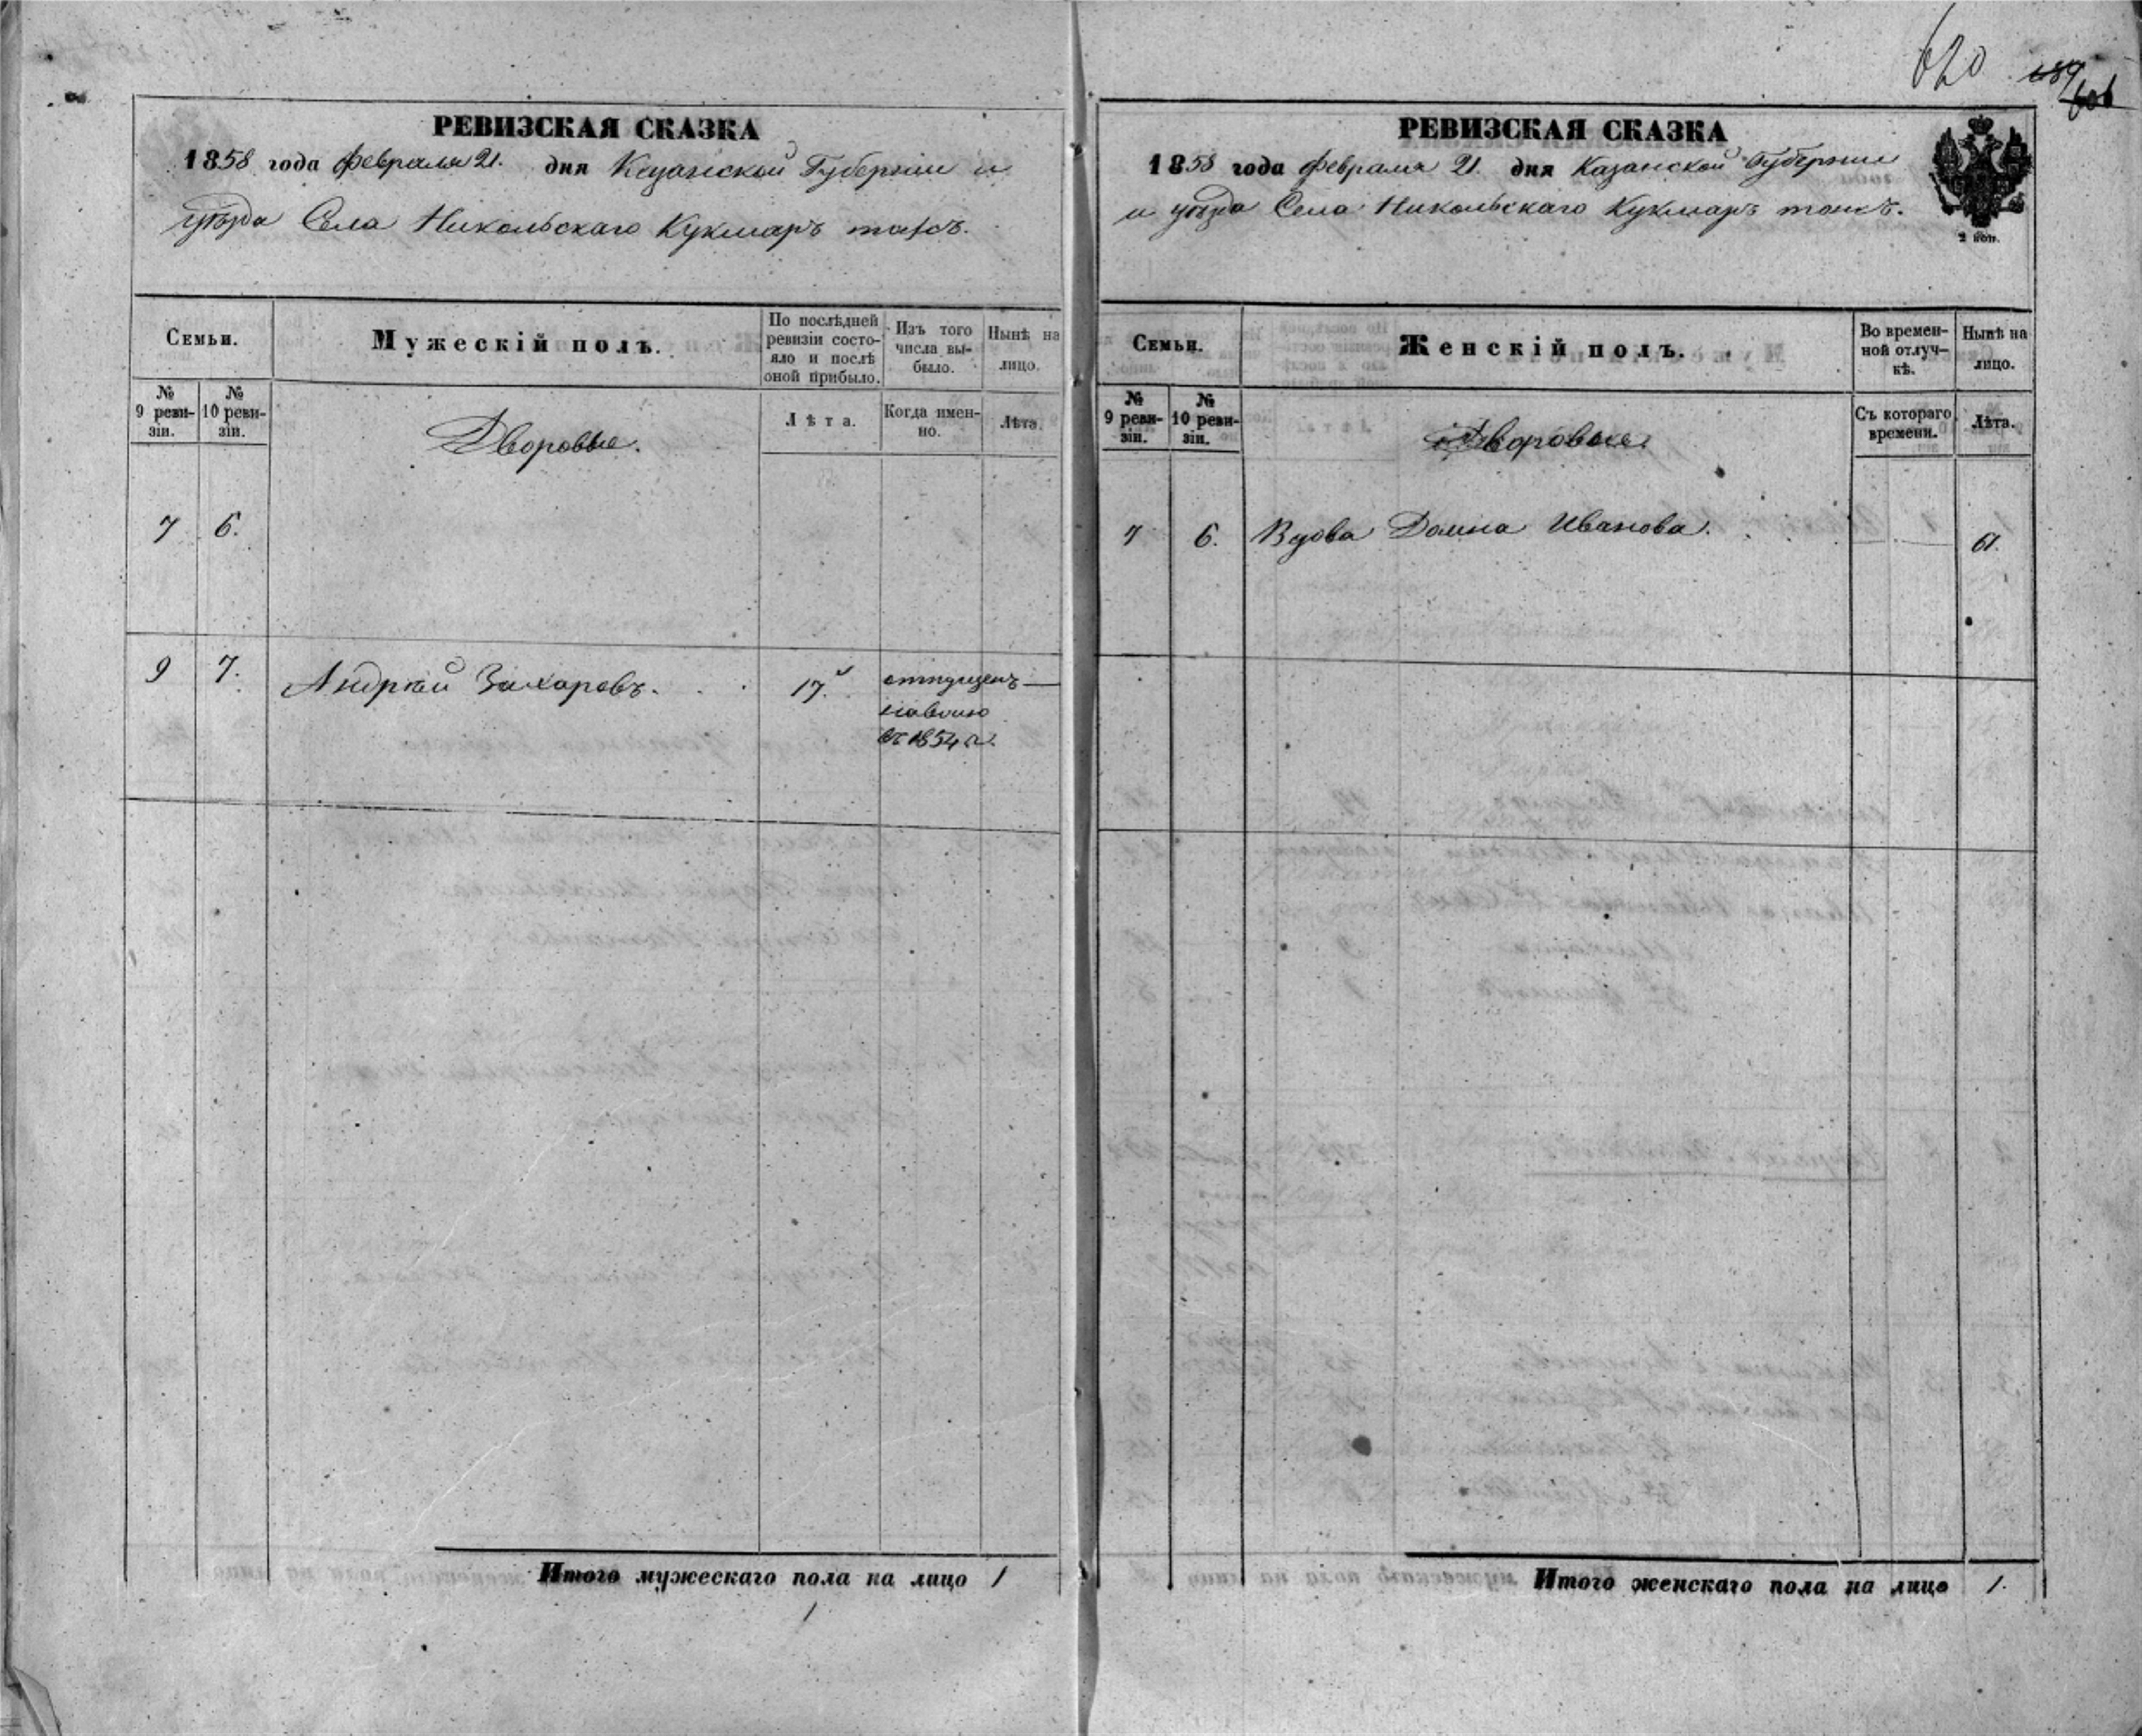 620
606
РЕВИЗСКАЯ СКАЗКА
1858 года февраля 21. дня Казанской Губернии и
уѣзда Села Никольскаго Кукмаръ тожъ.
Семьи.
Мужескій полъ.
По послѣдней
ревизіи состо-
яло и послѣ
оной прибыло.
Изъ того
числа вы-
было.
Нынѣ на
лицо.
№
9 реви-
зіи.
№
10 реви-
зіи.
Дворовые.
Лѣта.
Когда имен-
но.
Лѣта.
7 6.
9 7. Андрей Захаровъ. 17. отпущенъ
на волю
въ 1854 г.
Итого мужескаго пола на лицо 1
1
РЕВИЗСКАЯ СКАЗКА
1858 года февраля 21. дня Казанской Губернии
и уѣзда Села Никольскаго Кукмаръ тожъ.
2 коп.
Семьи.
Женскій полъ.
Во времен-
ной отлуч-
кѣ.
Нынѣ на
лицо.
№
9 реви-
зіи.
№
10 реви-
зіи.
Дворовые.
Съ котораго
времени.
Лѣта.
7 6. Вдова Домна Иванова. 61.
Итого женскаго пола на лицо 1.